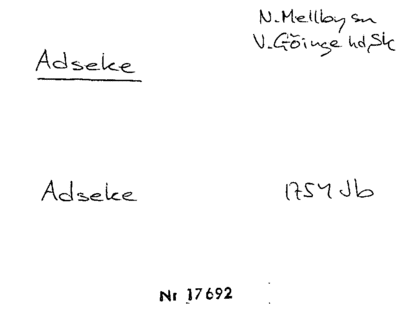 N. Mellby sn
Adseke
V. Göinge hd, Sk
Adseke
1754 Jb
Nr 17692